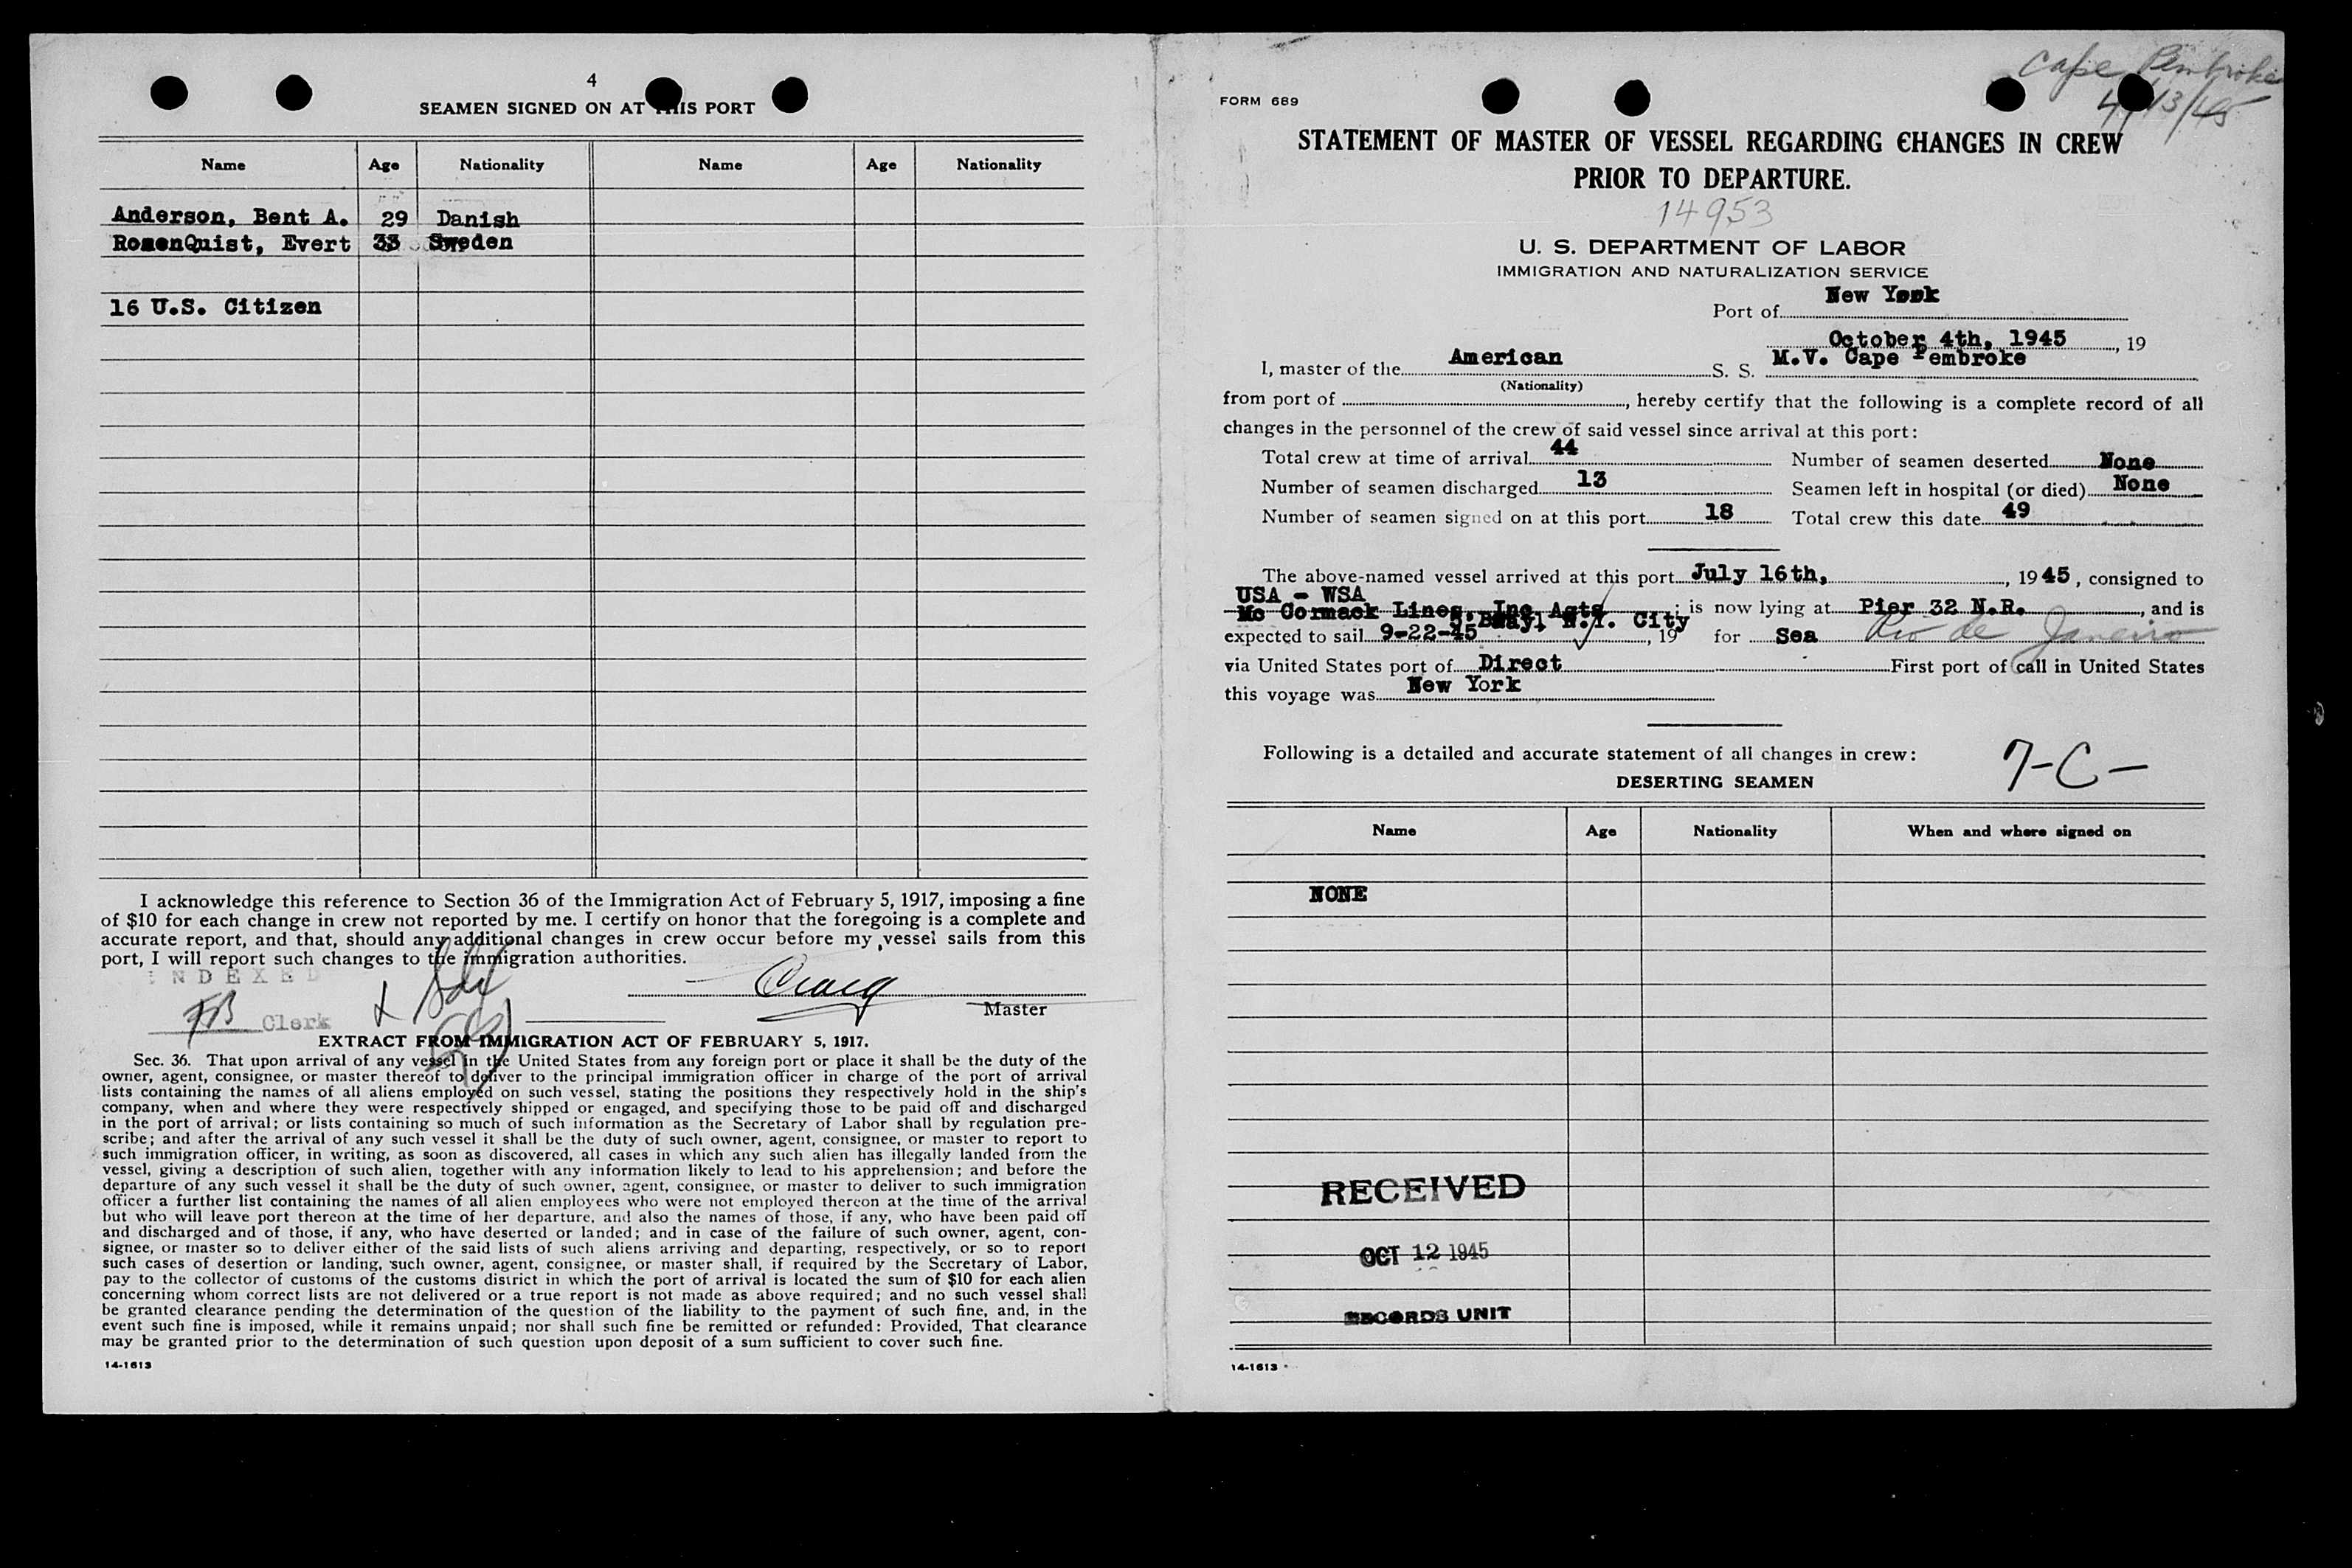 4
SEAMEN SIGNED ON AT THIS PORT
Name Age Nationality Name Age Nationality
Anderson, Bent A. 29 Danish
RosenQuist, Evert 33 Sweden
16 U.S. Citizen
I acknowledge this reference to Section 36 of the Immigration Act of February 5, 1917, imposing a fine
of $10 for each change in crew not reported by me. I certify on honor that the foregoing is a complete and
accurate report, and that, should any additional changes in crew occur before my vessel sails from this
port, I will report such changes to the immigration authorities.
INDEXED
Craig
Master
FB Clerk
EXTRACT FROM IMMIGRATION ACT OF FEBRUARY 5, 1917.
Sec. 36. That upon arrival of any vessel in the United States from any foreign port or place it shall be the duty of the
owner, agent, consignee, or master thereof to deliver to the principal immigration officer in charge of the port of arrival
lists containing the names of all aliens employed on such vessel, stating the positions they respectively hold in the ship's
company, when and where they were respectively shipped or engaged, and specifying those to be paid off and discharged
in the port of arrival; or lists containing so much of such information as the Secretary of Labor shall by regulation pre-
scribe; and after the arrival of any such vessel it shall be the duty of such owner, agent, consignee, or master to report to
such immigration officer, in writing, as soon as discovered, all cases in which any such alien has illegally landed from the
vessel, giving a description of such alien, together with any information likely to lead to his apprehension; and before the
departure of any such vessel it shall be the duty of such owner, agent, consignee, or master to deliver to such immigration
officer a further list containing the names of all alien employees who were not employed thereon at the time of the arrival
but who will leave port thereon at the time of her departure, and also the names of those, if any, who have been paid off
and discharged and of those, if any, who have deserted or landed; and in case of the failure of such owner, agent, con-
signee, or master so to deliver either of the said lists of such aliens arriving and departing, respectively, or so to report
such cases of desertion or landing, such owner, agent, consignee, or master shall, if required by the Secretary of Labor,
pay to the collector of customs of the customs district in which the port of arrival is located the sum of $10 for each alien
concerning whom correct lists are not delivered or a true report is not made as above required; and no such vessel shall
be granted clearance pending the determination of the question of the liability to the payment of such fine, and, in the
event such fine is imposed, while it remains unpaid; nor shall such fine be remitted or refunded: Provided, That clearance
may be granted prior to the determination of such question upon deposit of a sum sufficient to cover such fine.
14-1613
Cape Pembroke
4/13/45
FORM 689
STATEMENT OF MASTER OF VESSEL REGARDING CHANGES IN CREW
PRIOR TO DEPARTURE.
14953
U. S. DEPARTMENT OF LABOR
IMMIGRATION AND NATURALIZATION SERVICE
Port of New York
October 4th, 1945, 19
I, master of the American S. S. M.V. Cape Pembroke
(Nationality)
from port of , hereby certify that the following is a complete record of all
changes in the personnel of the crew of said vessel since arrival at this port:
Total crew at time of arrival 44 Number of seamen deserted None
Number of seamen discharged 13 Seamen left in hospital (or died) None
Number of seamen signed on at this port 18 Total crew this date 49
The above-named vessel arrived at this port July 16th, , 1945, consigned to
USA - WSA
Mc Cormack Lines, Inc Agts ; is now lying at Pier 32 N.R. , and is
5 Bway, N.Y. City
expected to sail 9-22-45 , 19 for Sea Rio de Janeiro
via United States port of Direct First port of call in United States
this voyage was New York
Following is a detailed and accurate statement of all changes in crew:
7-C-
DESERTING SEAMEN
Name Age Nationality When and where signed on
NONE
RECEIVED
OCT 12 1945
RECORDS UNIT
14-1613